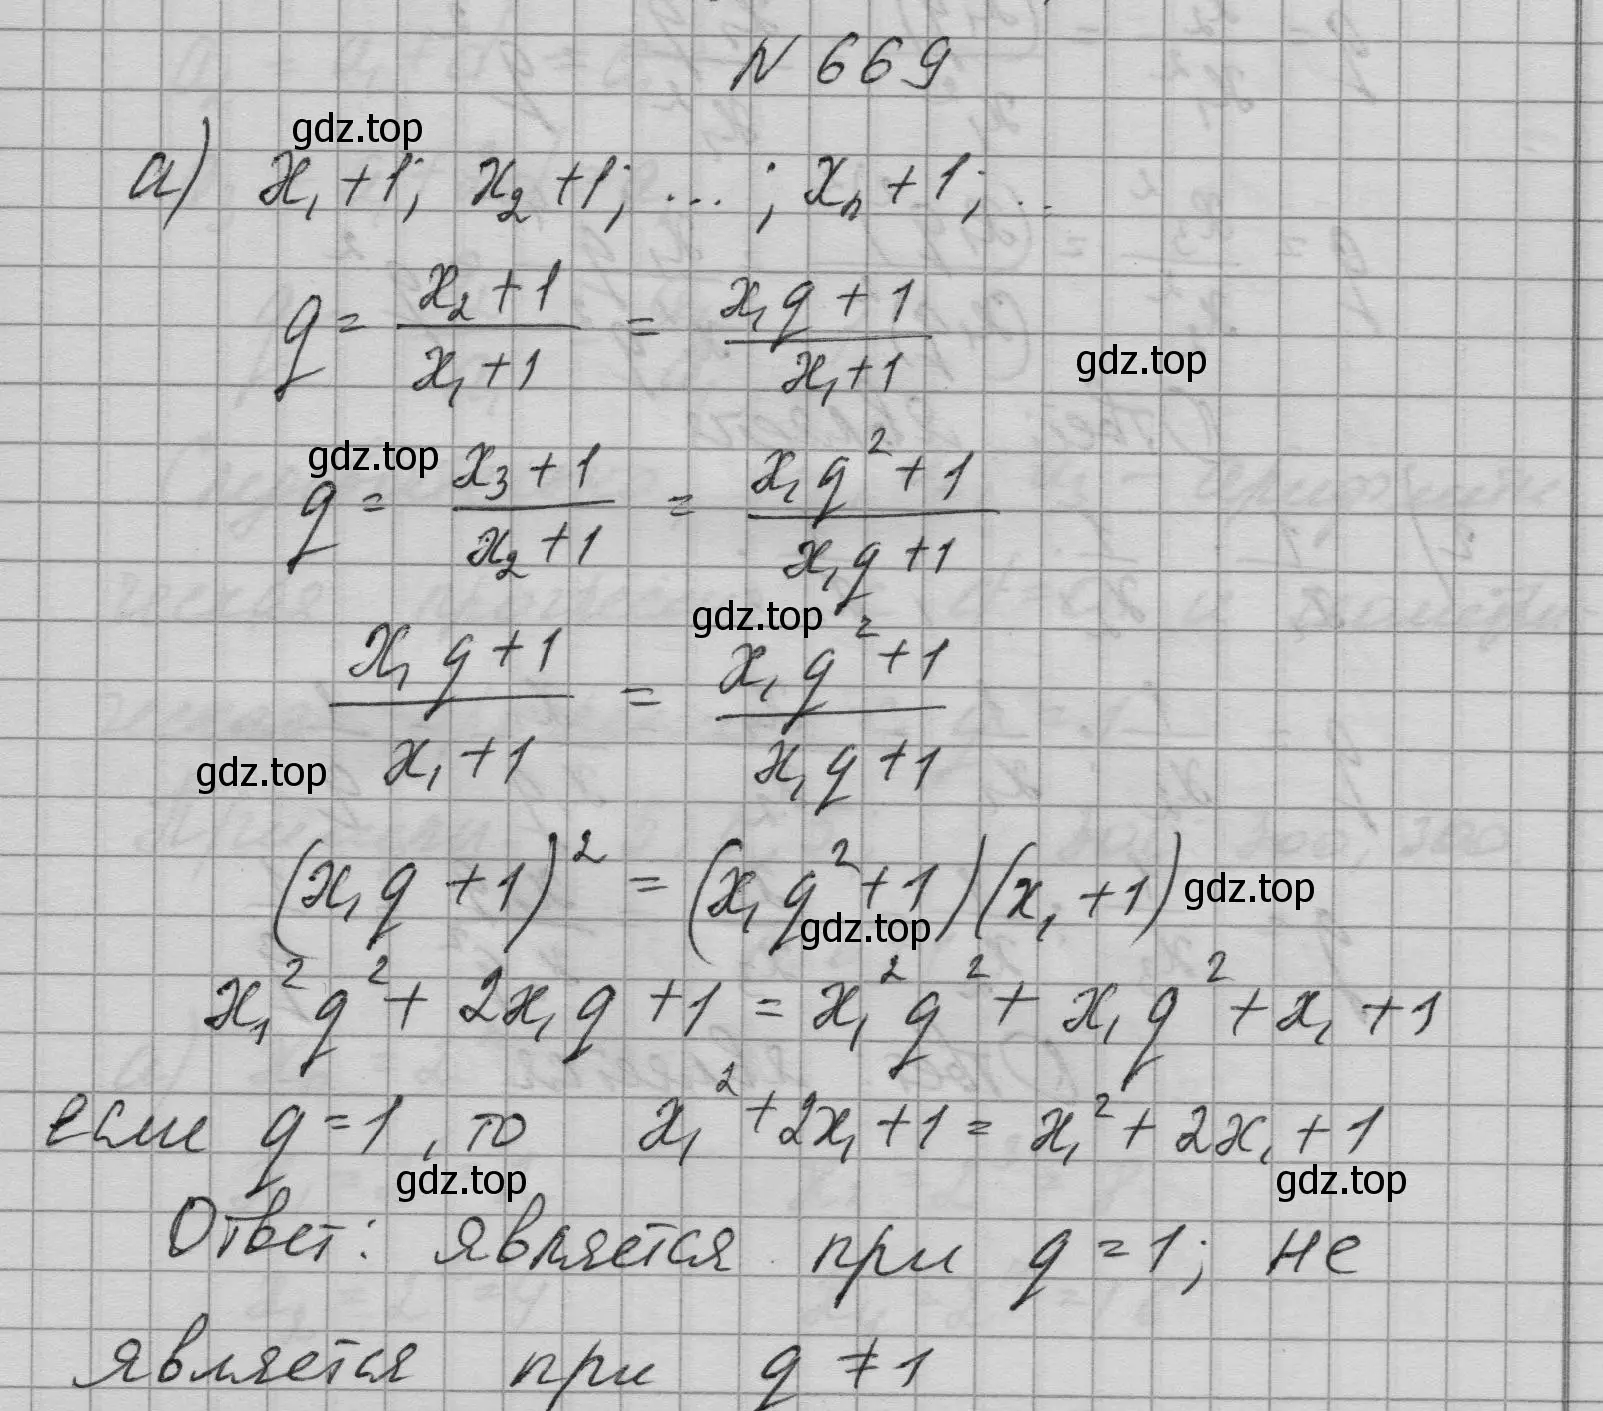 N 669
gdz.top
а) x₁+1; x₂+1; ...; xₙ+1; ..
q = (x₂+1)/(x₁+1) = (x₁q+1)/(x₁+1)
gdz.top
gdz.top
q = (x₃+1)/(x₂+1) = (x₁q²+1)/(x₁q+1)
gdz.top
(x₁q+1)/(x₁+1) = (x₁q²+1)/(x₁q+1)
gdz.top
(x₁q+1)² = (x₁q²+1)(x₁+1)
gdz.top
gdz.top
x₁²q²+2x₁q+1 = x₁²q²+x₁q²+x₁+1
если q=1, то x₁²+2x₁+1 = x₁²+2x₁+1
gdz.top
gdz.top
Ответ: является при q=1; не
является при q≠1